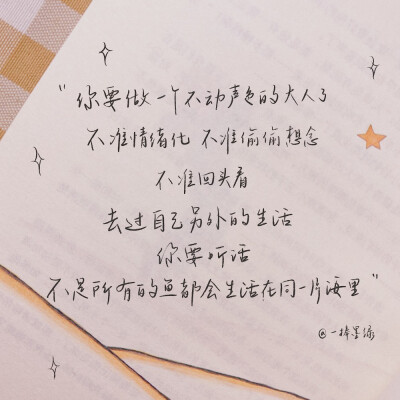 “你要做一个不动声色的大人了
不准情绪化 不准偷偷想念
不准回头看
去过自己另外的生活
你要听话
不是所有的鱼都会生活在同一片海里”
@一捧星